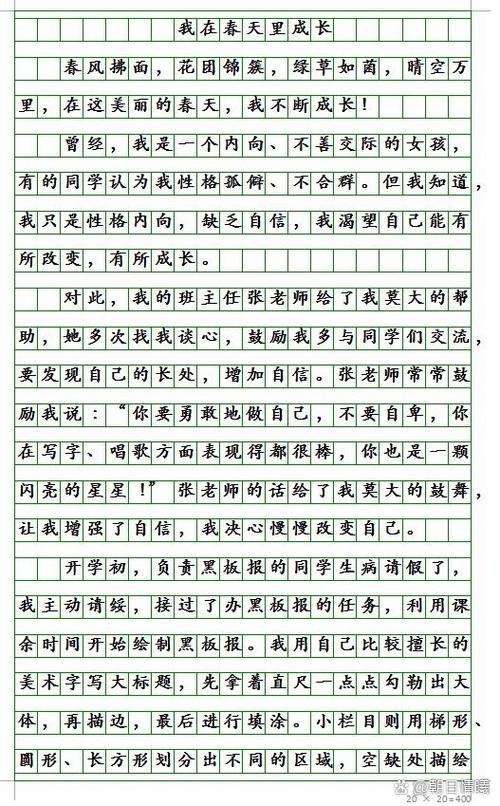 我在春天里成长
春风拂面，花团锦簇，绿草如茵，晴空万
里，在这美丽的春天，我不断成长！
曾经，我是一个内向、不善交际的女孩，
有的同学认为我性格孤僻、不合群。但我知道，
我只是性格内向，缺乏自信，我渴望自己能有
所改变，有所成长。
对此，我的班主任张老师给了我莫大的帮
助，她多次找我谈心，鼓励我多与同学们交流，
要发现自己的长处，增加自信。张老师常常鼓
励我说：“你要勇敢地做自己，不要自卑，你
在写字、唱歌方面表现得都很棒，你也是一颗
闪亮的星星！”张老师的话给了我莫大的鼓舞，
让我增强了自信，我决心慢慢改变自己。
开学初，负责黑板报的同学生病请假了，
我主动请绥，接过了办黑板报的任务，利用课
余时间开始绘制黑板报。我用自己比较擅长的
美术字写大标题，先拿着直尺一点点勾勒出大
体，再描边，最后进行填涂。小栏目则用梯形、
圆形、长方形划分出不同的区域，空缺处描绘
@朝日情曦
20 × 20=400